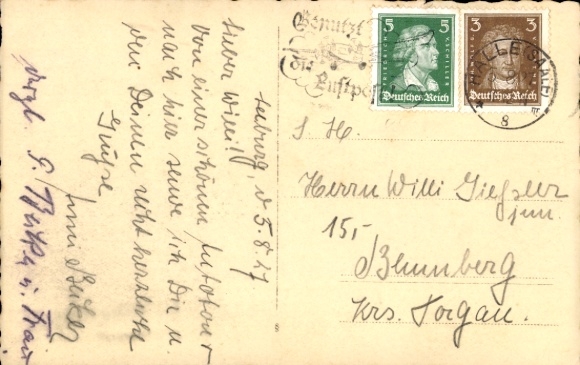 Benutzt
die
Luftpost
5 5
FRIEDRICH V. SCHILLER
Deutsches Reich
3 3
Deutsches Reich
HALLE (SAALE)
8
S. H.
Herrn Willi Gießler
jun.
15,-
Blumberg
Krs. Torgau.
d 5.8.27
Lieber Willi!
Von einer schönen Autotour
nach hier sende ich Dir u.
den Deinen recht herzliche
Grüße
vergl. G. u. Frau